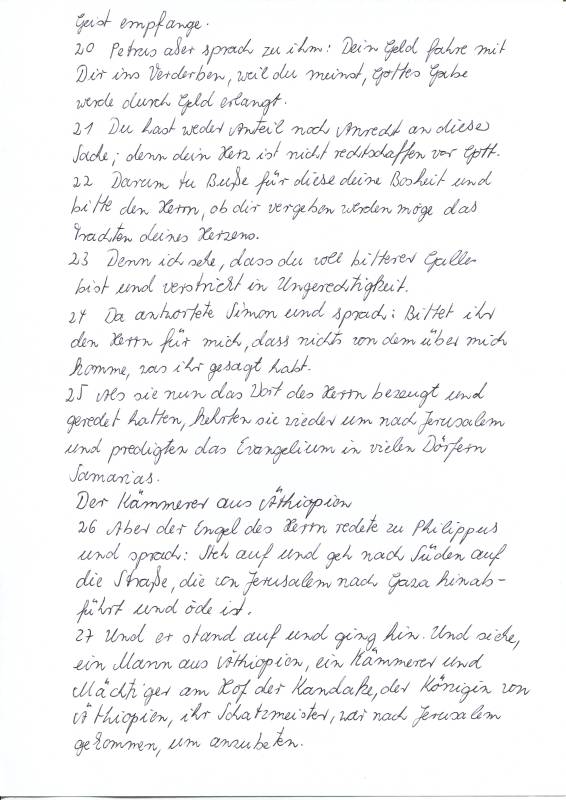 Geist empfange.
20 Petrus aber sprach zu ihm: Dein Geld fahre mit
Dir ins Verderben, weil du meinst, Gottes Gabe
werde durch Geld erlangt.
21 Du hast weder Anteil noch Anrecht an dieser
Sache; denn dein Herz ist nicht rechtschaffen vor Gott.
22 Darum tu Buße für diese deine Bosheit und
bitte den Herrn, ob dir vergeben werden möge das
Trachten deines Herzens.
23 Denn ich sehe, dass du voll bitterer Galle
bist und verstrickt in Ungerechtigkeit.
24 Da antwortete Simon und sprach: Bittet ihr
den Herrn für mich, dass nichts von dem über mich
komme, was ihr gesagt habt.
25 Als sie nun das Wort des Herrn bezeugt und
geredet hatten, kehrten sie wieder um nach Jerusalem
und predigten das Evangelium in vielen Dörfern
Samarias.
Der Kämmerer aus Äthiopien
26 Aber der Engel des Herrn redete zu Philippus
und sprach: Steh auf und geh nach Süden auf
die Straße, die von Jerusalem nach Gaza hinab-
führt und öde ist.
27 Und er stand auf und ging hin. Und siehe,
ein Mann aus Äthiopien, ein Kämmerer und
Mächtiger am Hof der Kandake, der Königin von
Äthiopien, ihr Schatzmeister, war nach Jerusalem
gekommen, um anzubeten.